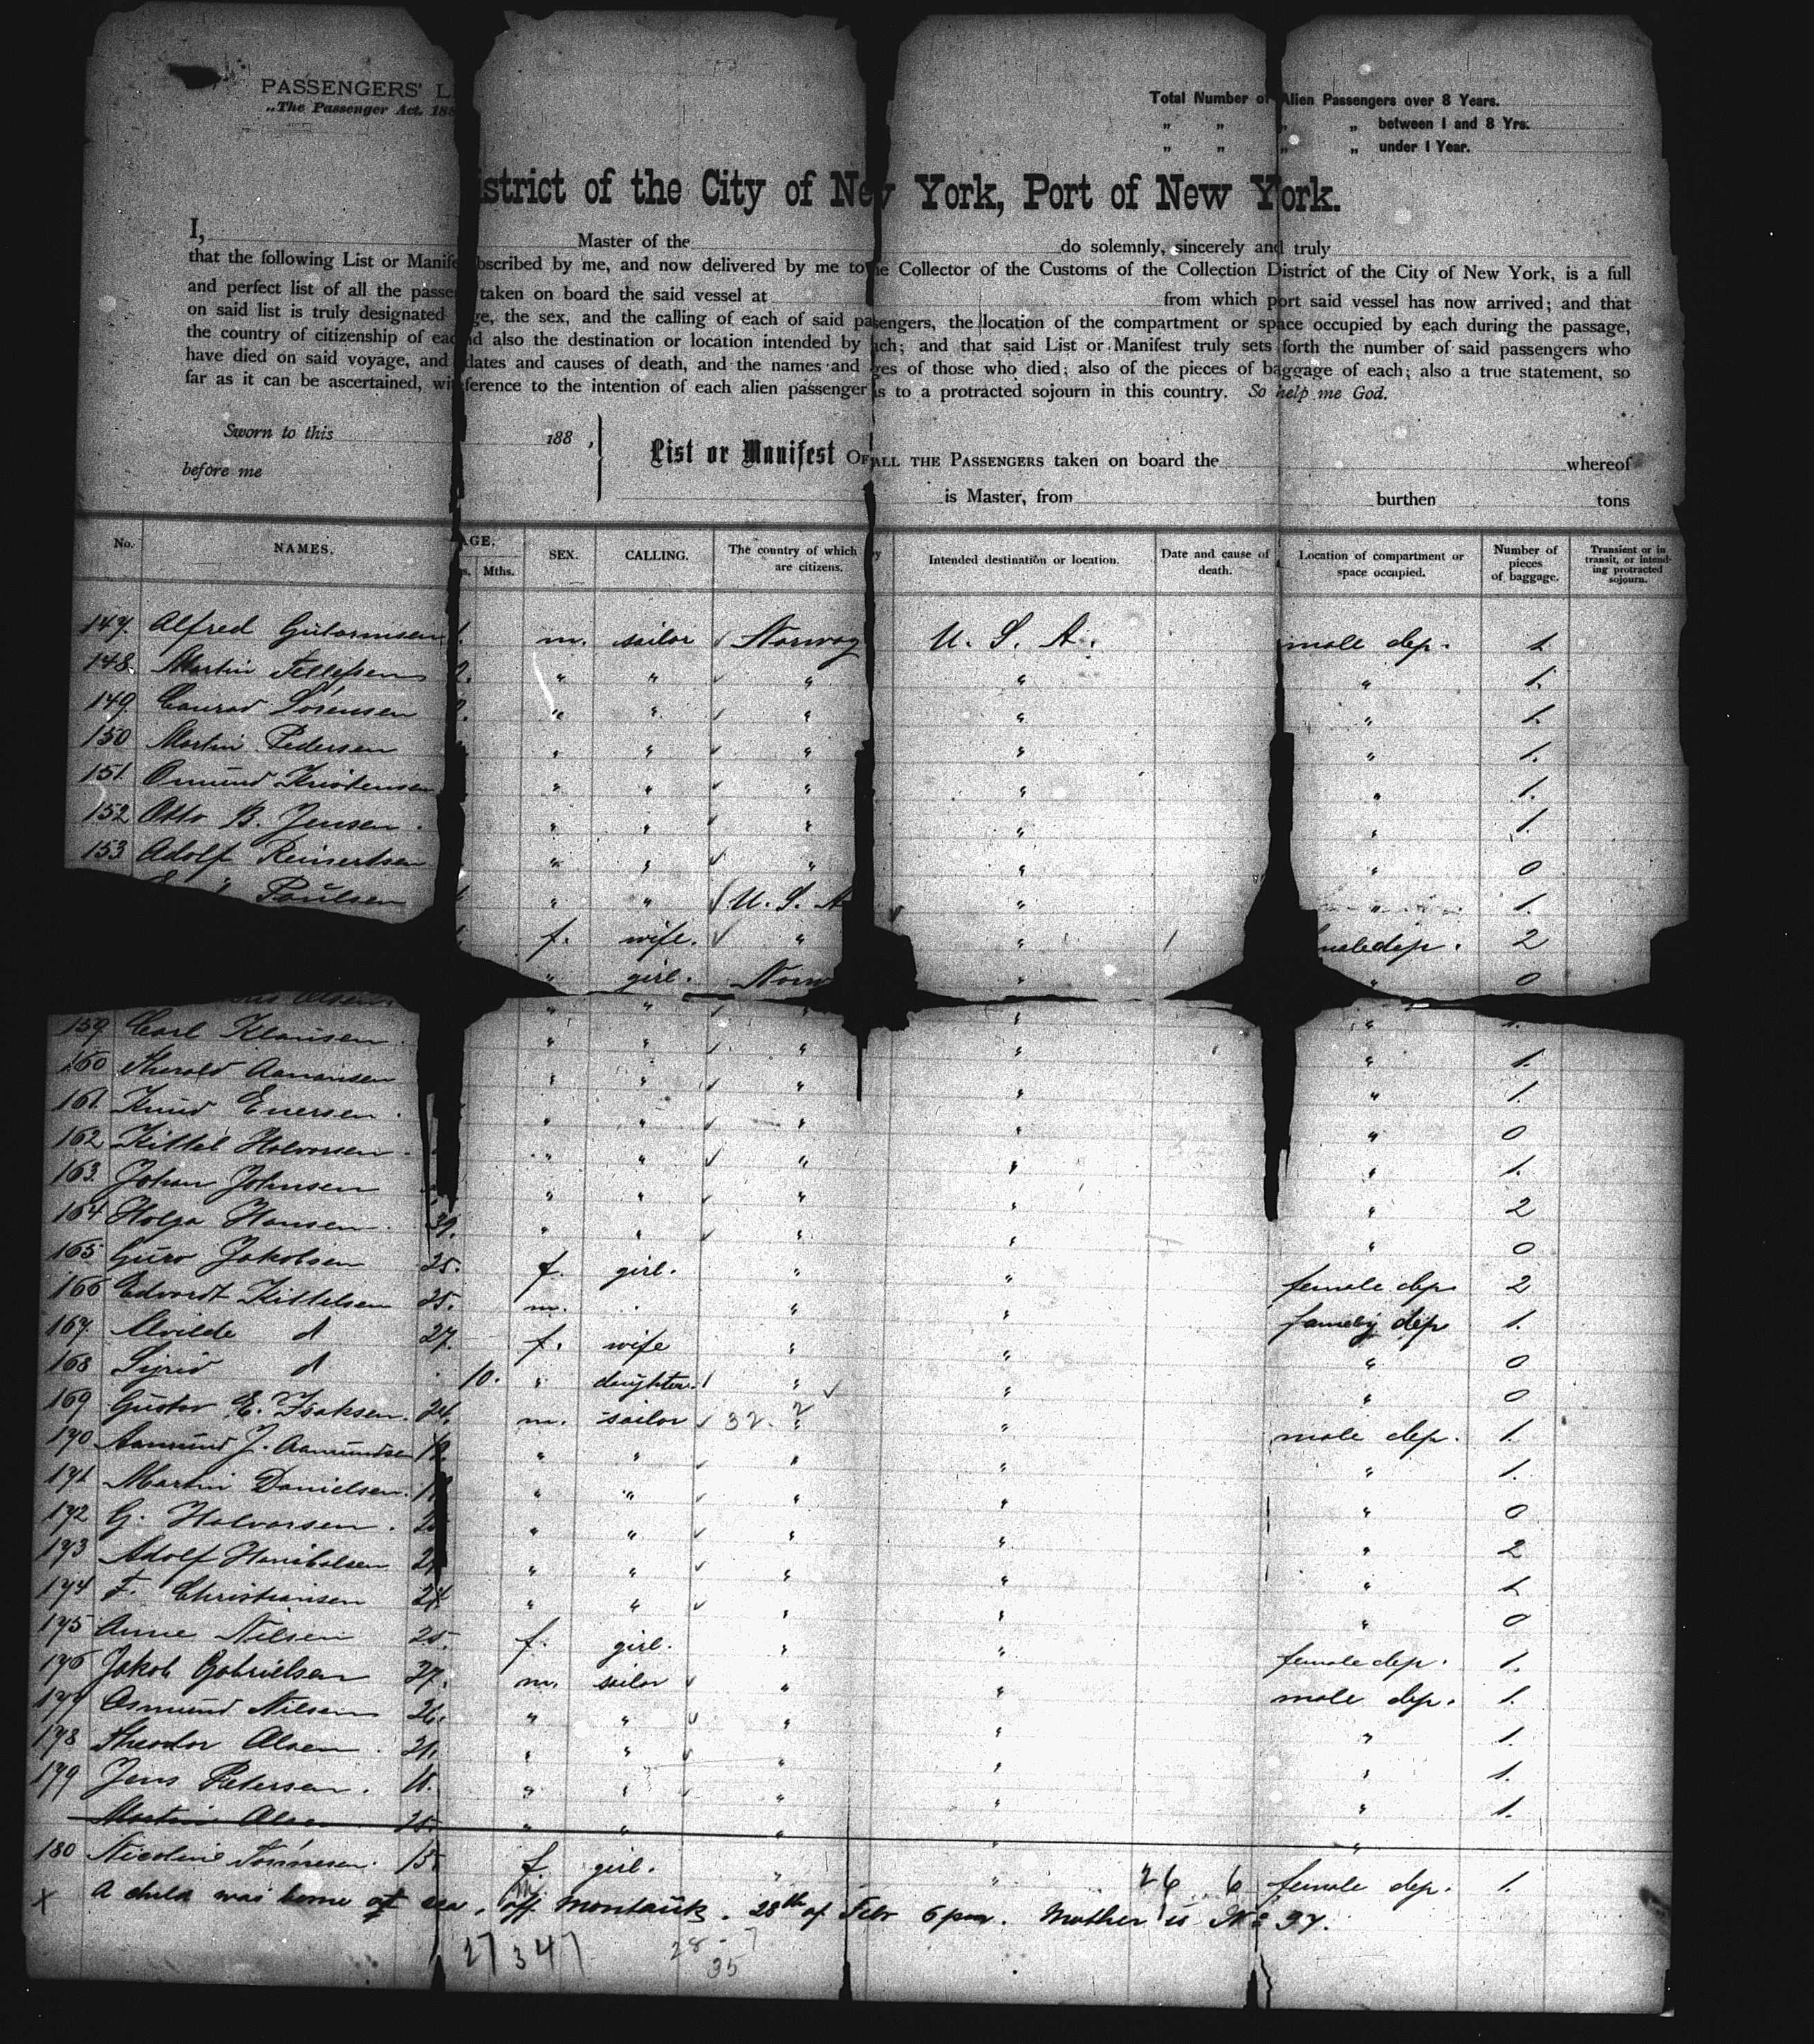 PASSENGERS' L
„The Passenger Act. 188
Total Number of Alien Passengers over 8 Years.
„ „ „ „ between 1 and 8 Yrs.
„ „ „ „ under 1 Year.
istrict of the City of New York, Port of New York.
I, Master of the do solemnly, sincerely and truly
that the following List or Manife bscribed by me, and now delivered by me to e Collector of the Customs of the Collection District of the City of New York, is a full
and perfect list of all the passe taken on board the said vessel at from which port said vessel has now arrived; and that
on said list is truly designated ge, the sex, and the calling of each of said passengers, the location of the compartment or space occupied by each during the passage,
the country of citizenship of eac nd also the destination or location intended by ach; and that said List or Manifest truly sets forth the number of said passengers who
have died on said voyage, and dates and causes of death, and the names and ges of those who died; also of the pieces of baggage of each; also a true statement, so
far as it can be ascertained, wi ference to the intention of each alien passenger s to a protracted sojourn in this country. So help me God.
Sworn to this 188 ,
before me
List or Manifest OF ALL THE PASSENGERS taken on board the whereof
is Master, from burthen tons
No. NAMES. AGE. s. Mths. SEX. CALLING. The country of which y are citizens. Intended destination or location. Date and cause of death. Location of compartment or space occupied. Number of pieces of baggage. Transient or in transit, or intending protracted sojourn.
147. Alfred m. sailor Norway U. S. A. male dep. 1
148. Martin Tellefsen 2. " " " " " 1.
149. Conrad Sörensen " " " " " 1.
150 Martin Pedersen " " " " " 1.
151. Omund " " " " " 1.
152 Otto B. Jensen. " " " " " 1.
153 Adolf Reinertsen " " " " " 0
Paülsen " " U. S. A " " 1.
f. wife. " " maledep. 2
" girl. Norw " " 0
Olsen. " " " " " 1.
159. Carl Klausen. " " " " " 1.
160 Aanonsen " " " " " 1.
161. Knud Evensen. " " " " " 0
162 Kittel Halvorsen. " " " " " 1.
163. Johan Johnsen " " " " " 2
164 Holga Hansen. 39. " " " " " 0
165 Guro Jakobsen 25. f. girl. " " female dep. 2
166 Edvardt Kittelsen 25. m. . " " family dep 1.
167. Alvilde d 27. f. wife " " " 0
168 Sigrid d . 10. " daughter. " " " 0
169 Gustav E. Isaksen. 24. m. sailor 32. 2 " " male dep. 1.
170 Aamund J. Aamundsen 18. " " " " " 1.
171 Martin Danielsen. 1 " " " " " 0
172 G. Halvorsen. 2 " " " " " 2
173 Adolf Hanibalsen 2 " " " " " 1
174 F. Christiansen 24. " " " " " 0
175 Anne Nilsen 25. f. girl. " " female dep. 1.
176 Jakob Gabrielsen 27. m. sailor " " male dep. 1.
177 Osmund Nilsen 26. " " " " " 1.
178 Theodor Olsen. 21. " " " " " 1.
179 Jens Petersen. 18. " " " " " 1.
Martin Olsen 25. " " " " "
180 Nicoline 15. f. girl. " " 26 6 female dep. 1.
x A child was borne at sea, off Montauk. 28th of Febr 6 pm. Mother is No 97.
27 347 28 - 7
35